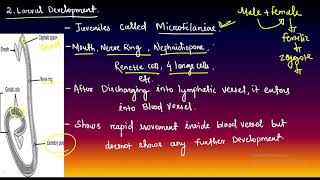 2. Larval Development.
- Juveniles called Microfilariae
- Mouth, Nerve Ring, Nephridiopore,
Renette cell, 4 large cells
etc.
- After Discharging into lymphatic vessel, it enters
into Blood Vessel.
- Shows rapid movement inside blood vessel but
doesnot shows any further Development.
Male + female
fertiliz
zygote
Cephalic space
Sheath
Nerve ring
Genital cells
Excretory pore